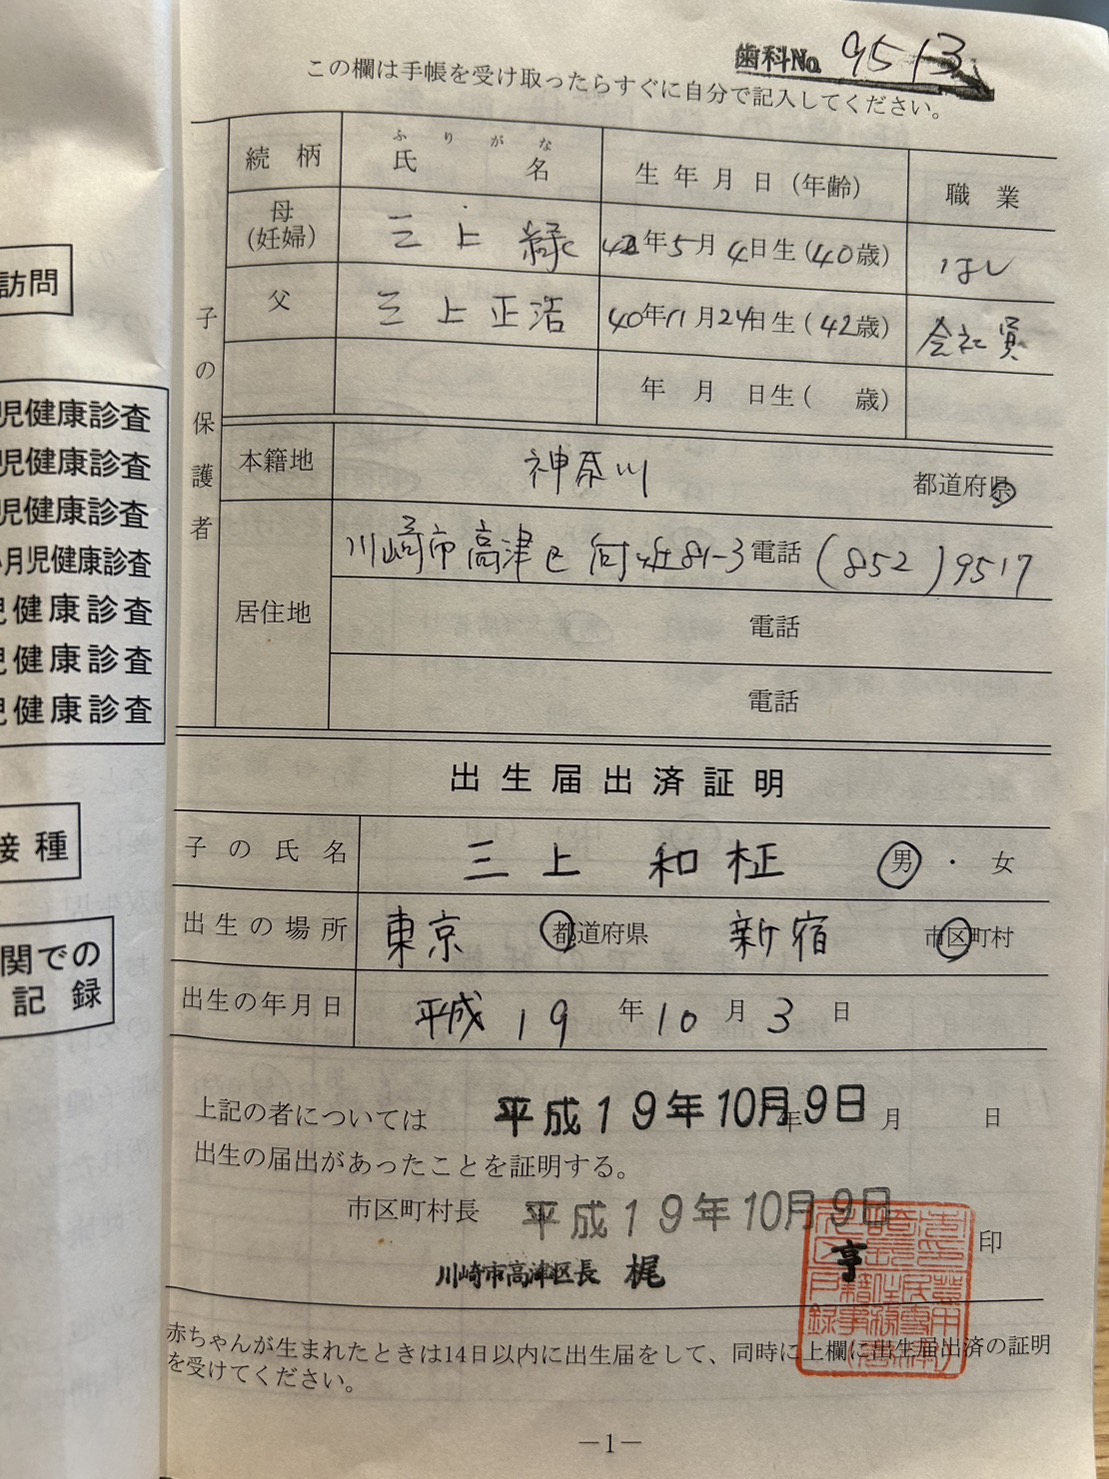 歯科No. 9513
この欄は手帳を受け取ったらすぐに自分で記入してください。
続柄 ふりがな 氏名 生年月日(年齢) 職業
母(妊婦) 三上 緑 42年5月4日生(40歳) なし
父 三上正浩 40年11月24日生(42歳) 会社員
年 月 日生( 歳)
子の保護者
本籍地 神奈川 都道府県
居住地 川崎市高津区 81-3 電話(852)9517
電話
電話
出生届出済証明
子の氏名 三上 和柾 男・女
出生の場所 東京 都道府県 新宿 市区町村
出生の年月日 平成19年10月3日
上記の者については 平成19年10月9日 年 月 日
出生の届出があったことを証明する。
市区町村長 平成19年10月9日 印
川崎市高津区長 梶 亨
赤ちゃんが生まれたときは14日以内に出生届をして、同時に上欄に出生届出済の証明
を受けてください。
—1—
訪問
児健康診査
児健康診査
児健康診査
月児健康診査
健康診査
健康診査
健康診査
接種
関での
記録